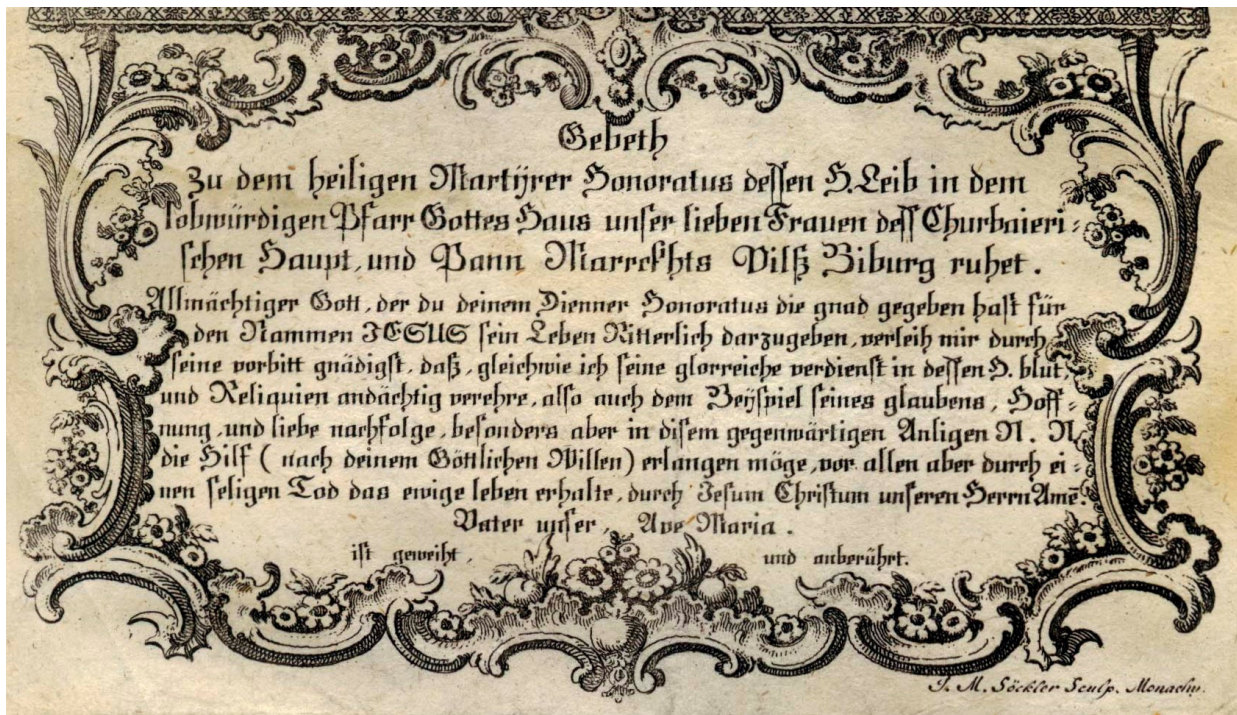 Gebeth
Zu dem heiligen Martÿrer Honoratus dessen H. Leib in dem
lobwürdigen Pfarr Gottes Haus unser lieben Frauen dess Churbaieri-
schen Haupt, und Pann Marckhts Vilß Biburg ruhet.
Allmächtiger Gott, der du deinem Dienner Honoratus die gnad gegeben hast für
den Nammen JESUS sein Leben Ritterlich darzugeben, verleih mir durch
seine vorbitt gnädigst, daß, gleichwie ich seine glorreiche verdienst in dessen H. blut,
und Reliquien andächtig verehre, also auch dem Beÿspiel seines glaubens, Hoff-
nung, und liebe nachfolge, besonders aber in disem gegenwärtigen Anligen N. N.
die Hilf ( nach deinem Göttlichen Willen) erlangen möge, vor allen aber durch ei-
nen seligen Tod das ewige leben erhalte, durch Jesum Christum unseren Herrn Amē.
Vater unser, Ave Maria.
ist geweiht, und anberührt.
J. M. Söckler Sculp. Monachij.